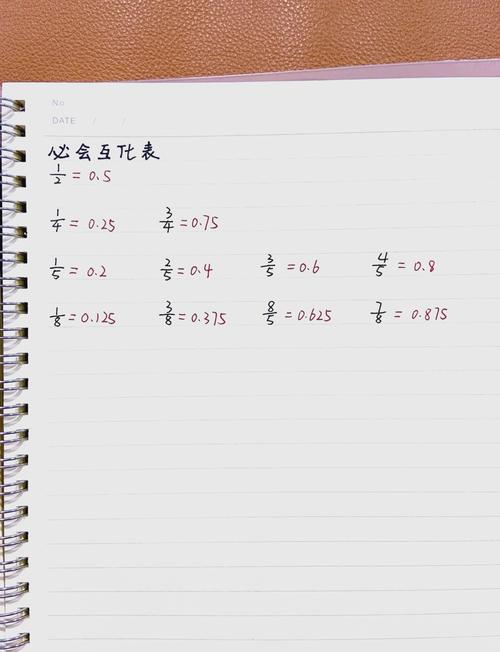 No
DATE / /
必会互化表
1/2 = 0.5
1/4 = 0.25 3/4 = 0.75
1/5 = 0.2 2/5 = 0.4 3/5 = 0.6 4/5 = 0.8
1/8 = 0.125 3/8 = 0.375 8/5 = 0.625 7/8 = 0.875